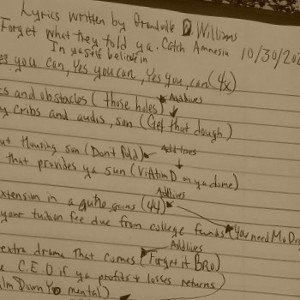 Lyrics written by Orendville D. Williams
Forget what they told ya. Catch Amnesia
10/30/20
In yaself believe in
yes you can, Yes you can, Yes you can (4x)
Addlives
and obstacles (those holes)
cribs and audis, son (Get that dough)
Addlives
flowing son (Don't fold)
that provides ya sun (Vitamin D on ya dome)
Addlives
extension in a (4x)
your tuition fee due from college funds (You need Mo
Addlives
extra drama that comes (Forget it Bro)
C.E.O if ya profits & losses returns
Down Yo mental)